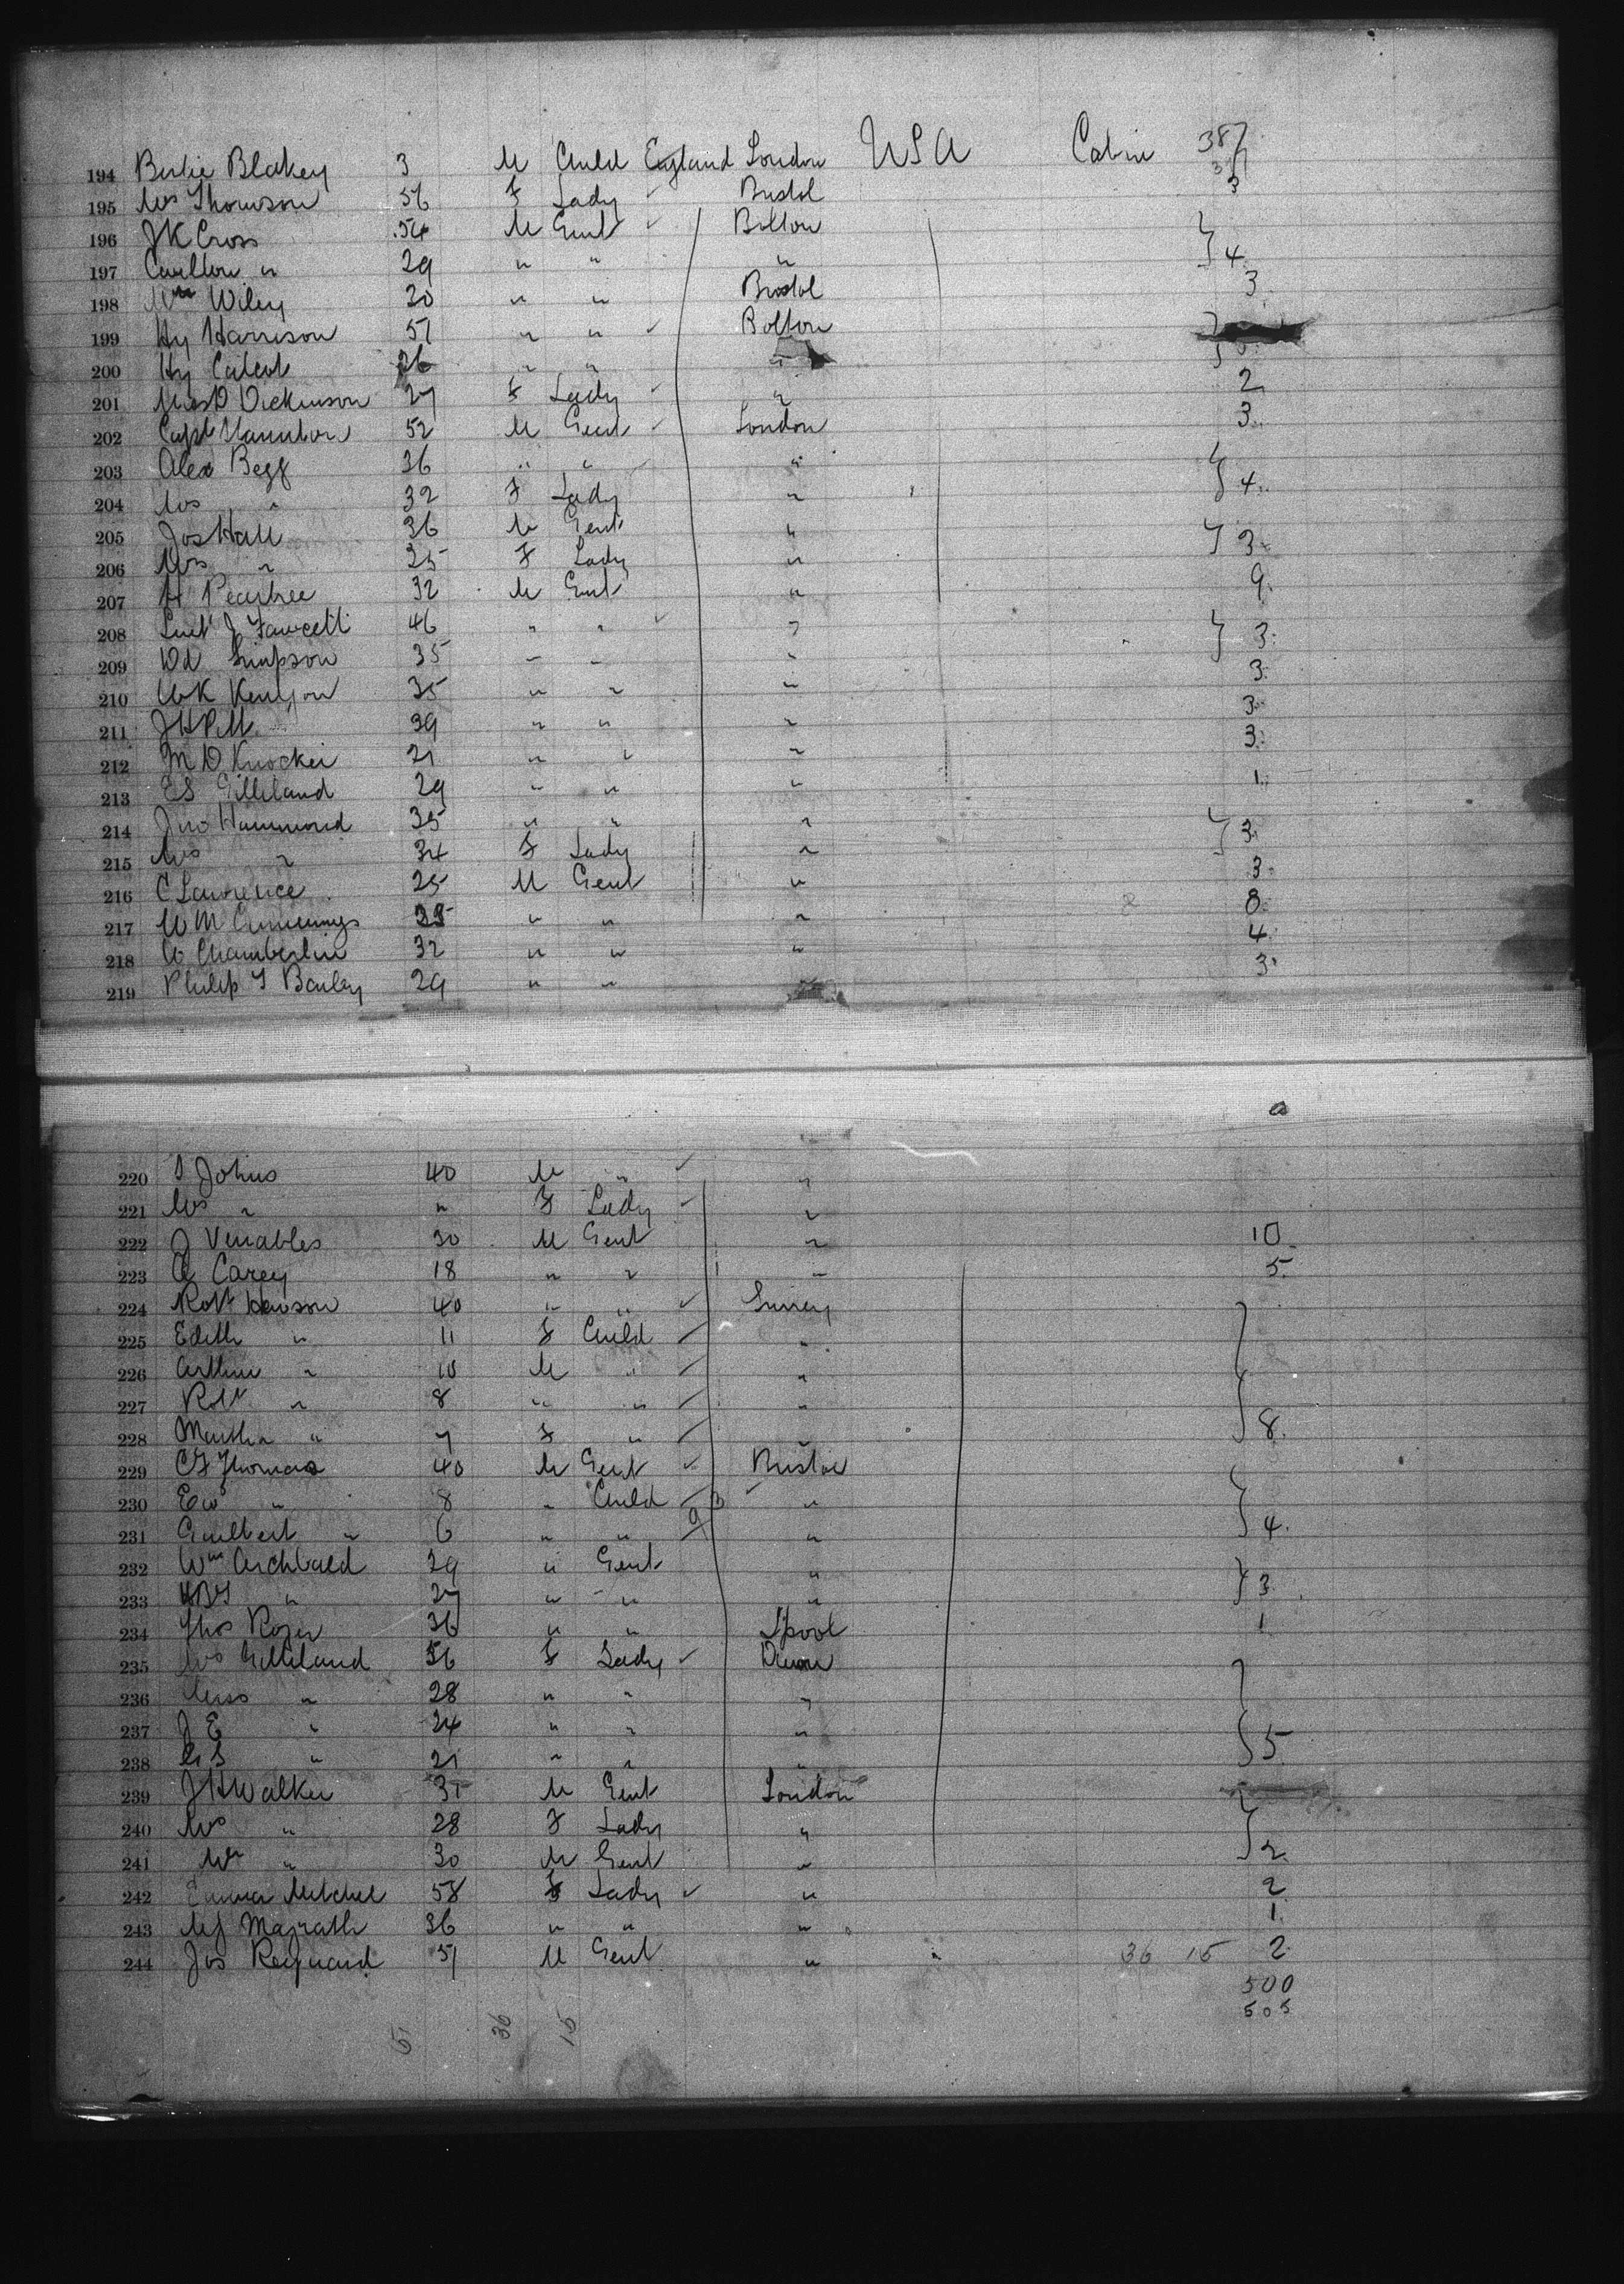 387
194 Bertie Blakey 3 M Child England London USA Cabin 3
195 Mrs Thomson 56 F Lady Bristol 3
196 J K Cross 54 M Gent Bolton
197 Carlton " 29 " " " 4
198 Wm Wiley 20 " " Bristol 3
199 Hy Harrison 51 " " Bolton
200 Hy 26 " " "
201 Miss D Dickinson 27 F Lady " 2
202 Capt Hamilton 52 M Gent London 3
203 Alex Begg 36 " " "
204 Mrs " 32 F Lady " 4
205 Jos Hall 36 M Gent "
206 Mrs " 25 F Lady " 3
207 H Peartree 32 M Gent " 9
208 Lieut J Fawcett 46 " " "
209 Wd Simpson 35 " " " 3
210 W K Kenyon 35 " " " 3
211 J H Pitt 39 " " " 3
212 M D Knocker 21 " " " 3
213 E S Gilleland 29 " " " 1
214 Jno Hammond 35 " " "
215 Mrs " 34 F Lady " 3
216 C Lawrence 25 M Gent " 3
217 W M Cummings 35 " " " 8
218 W Chamberlin 32 " " " 4
219 Philip T Bailey 29 " " 3
220 S Johns 40 M " "
221 Mrs " " F Lady "
222 J Venables 30 M Gent " 10
223 A Carey 18 " " " 5
224 Robt Hewson 40 " " Surrey
225 Edith " 11 F Child "
226 Arthur " 10 M " "
227 Robt " 8 " " "
228 Martha " 7 F " " 8
229 C F Thomas 40 M Gent Bristol
230 Ew " 8 " Child "
231 Guilbert " 6 " " " 4
232 Wm Archbald 29 " Gent "
233 " 27 " " " 3
234 Thos Roger 36 " " Lpool 1
235 Mrs Gilleland 56 F Lady Devon
236 Miss " 28 " " "
237 J E " 24 " " "
238 " 21 " " " 5
239 J H Walker 31 M Gent London
240 Mrs " 28 F Lady "
241 Mr " 30 M Gent " 2
242 Emma Mitchel 58 F Lady " 2
243 Magrath 36 " " " 1
244 Jos Reynard 51 M Gent " 36 15 2
500
505
51 36 15